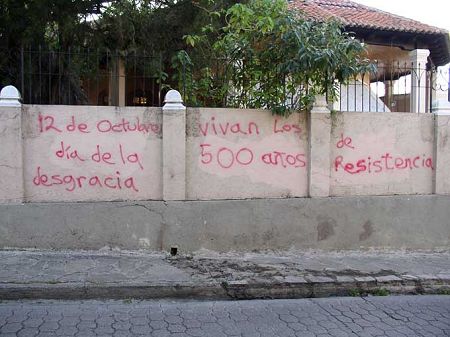 12 de Octubre
día de la
desgracia
vivan Los
500 años
de
Resistencia